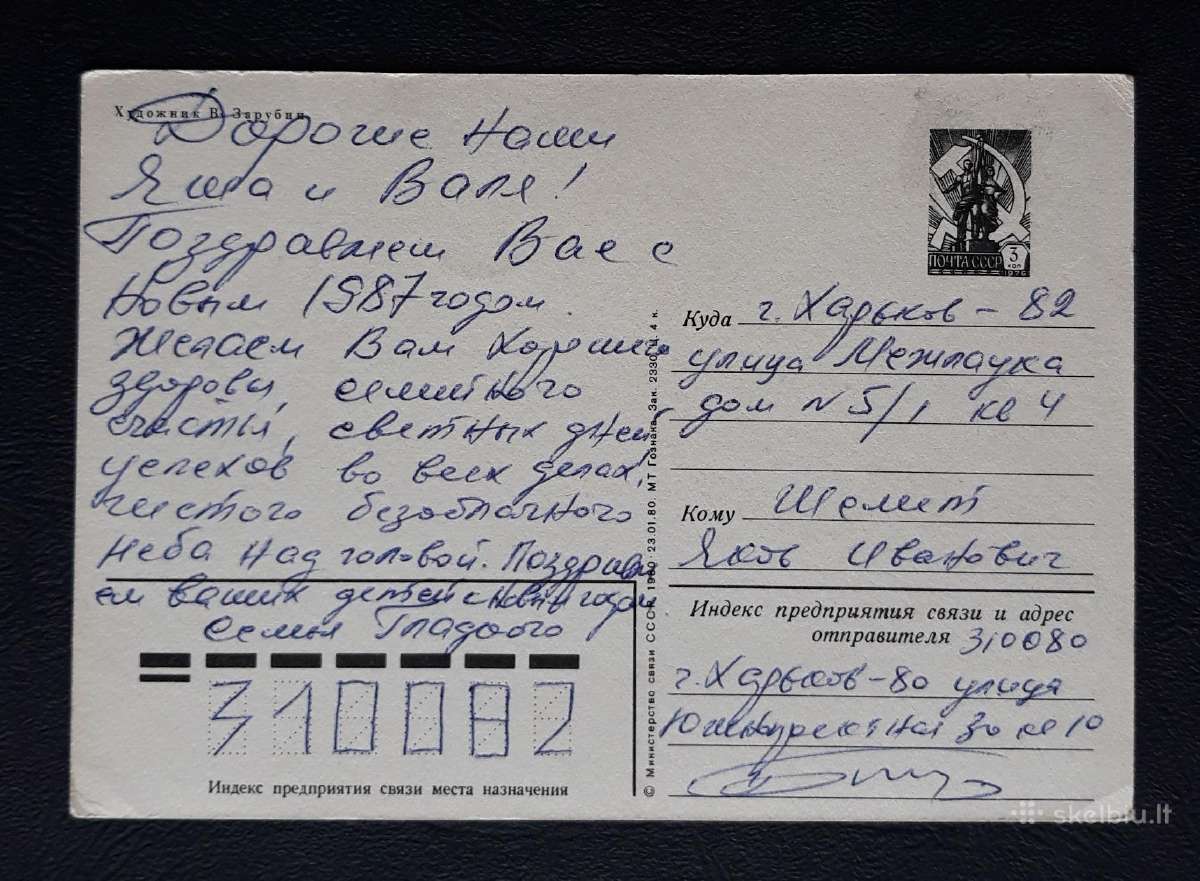 Художник В. Зарубин
Дорогие наши
Яша и Валя!
Поздравляем Вас с
Новым 1987 годом
Желаем Вам хорошего
здоровья, семейного
счастья, светлых дней
успехов во всех делах!
чистого безоблачного
неба над головой. Поздравля
ем ваших детей с новым годом
Семья Гладкого
310082
Индекс предприятия связи места назначения
© Министерство связи СССР. 1980 · 23.01.80. МТ Гознака. Зак. 2330. Ц. 4 к.
ПОЧТА СССР
3
коп
1976
Куда г. Харьков - 82
улица Межлаука
дом N 5/1 кв 4
Кому Шемет
Яков Иванович
Индекс предприятия связи и адрес
отправителя 310080
г. Харьков - 80 улица
30 кв 10
skelbiu.lt